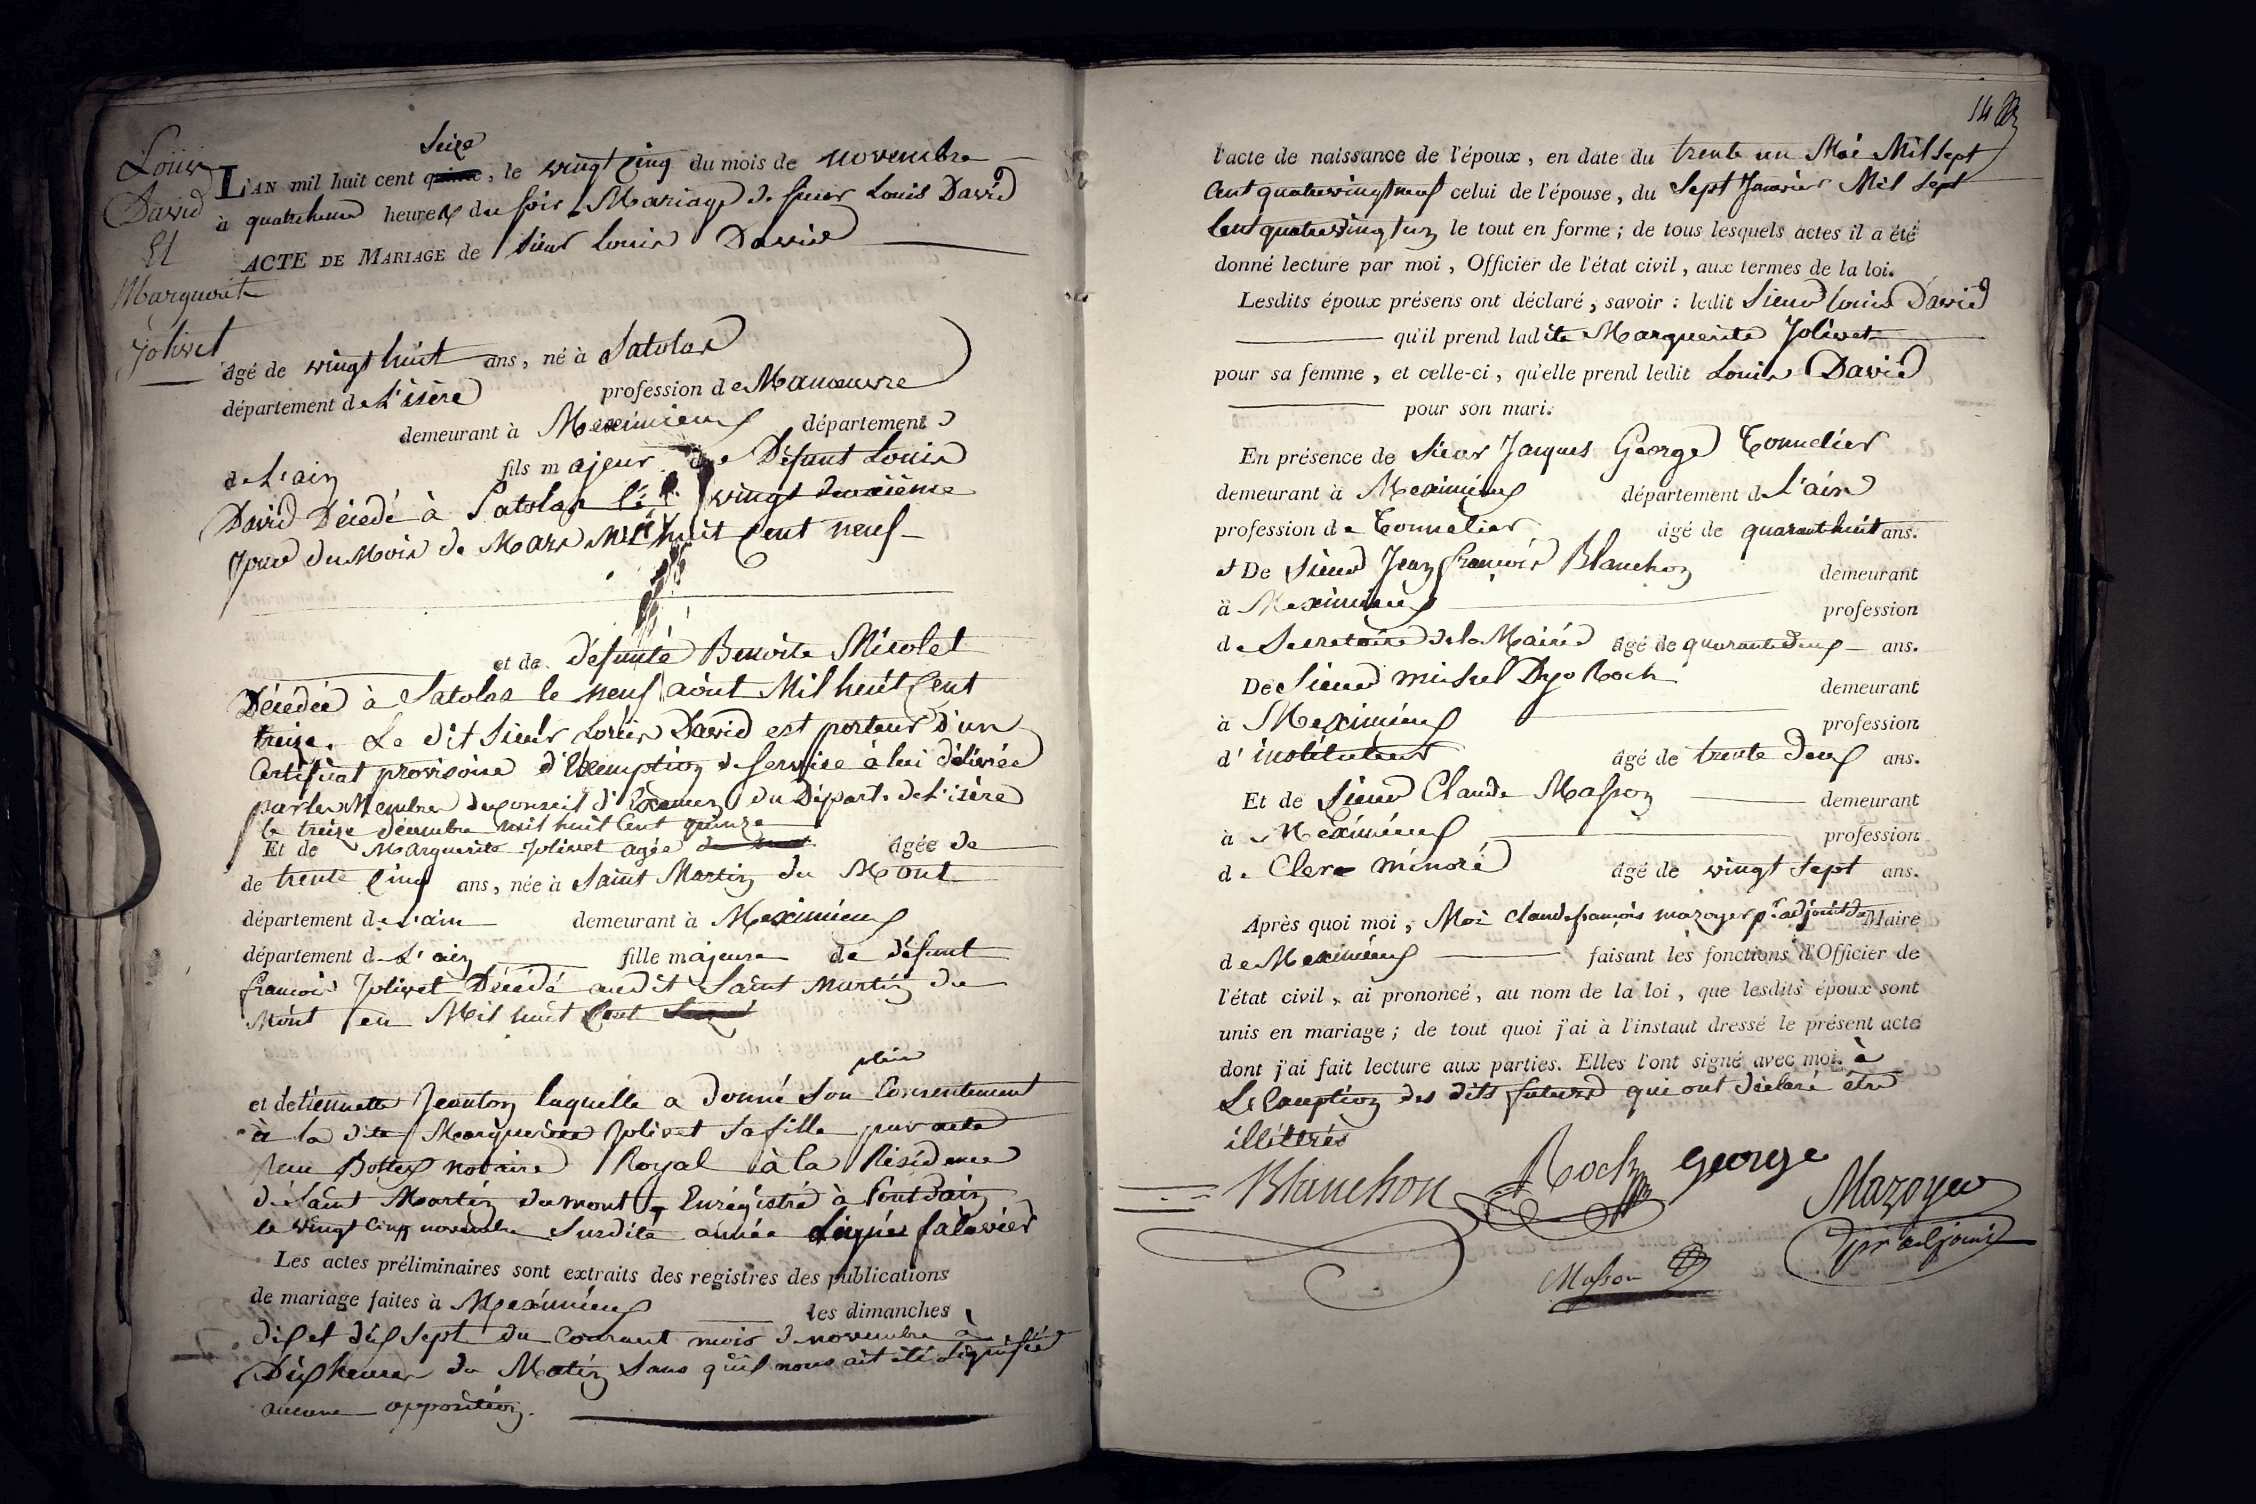 Louis
David
Et
Marguerite
Jolivet
Seize
L'AN mil huit cent quinze, le vingt Cinq du mois de novembre
à quatreheure heures du soir Mariage de sieur Louis David
ACTE DE MARIAGE de Sieur Louis David
âgé de vingt huit ans, né à Satolas
département de L'isère profession de Manoeuvre
demeurant à Meximieux département
de L'ain fils majeur de Défunt Louis
David Décédé à Satolas le vingt deuxième
Jour du Mois de Mars Mil huit Cent neuf
et de défunte Benoite Nicolet
Décédée à Satolas le neuf août Mil huit Cent
treize. Le dit Sieur Louis David est porteur d'un
Certificat provisoire d'Exemption de service à lui délivrée
par les Membres du Conseil d'Examen du Départ. de L'isère
le treize décembre mil huit Cent quinze
Et de Marguerite Jolivet agée âgée de
de trente Cinq ans, née à Saint Martin du Mont
département de L'ain demeurant à Meximieux
département de L'ain fille majeure de défunt
françois Jolivet Décédé audit Saint Martin du
Mont en Mil huit Cent
plein
et détiennette Jeanton laquelle a donné Son Consentement
à la dite Marguerite Jolivet Sa fille par acte
Reçu notaire Royal à la Résidence
de Saint Martin du mont, Enrégistré à Pontdain
le vingt Cinq novembre Susdite année Signée
Les actes préliminaires sont extraits des registres des publications
de mariage faites à Meximieux les dimanches
dix et dix Sept du Courant mois de novembre à
Dix heures du Matin Sans qu'il nous ait été Signifié
aucune opposition.
14
l'acte de naissance de l'époux, en date du trente un Mai Mil Sept
Cent quatrevingt neuf celui de l'épouse, du Sept Janvier Mil Sept
Cent quatrevingt un le tout en forme; de tous lesquels actes il a été
donné lecture par moi, Officier de l'état civil, aux termes de la loi.
Lesdits époux présens ont déclaré, savoir: ledit Sieur Louis David
qu'il prend ladite Marguerite Jolivet
pour sa femme, et celle-ci, qu'elle prend ledit Louis David
pour son mari.
En présence de Sieur Jacques George Tonnelier
demeurant à Meximieux département de L'ain
profession de Tonnelier âgé de quarant huit ans.
et De Sieur Jean françois Blanchon demeurant
à Meximieux profession
de Secretaire de la Mairie âgé de quarante deux ans.
De Sieur michel Roch demeurant
à Meximieux profession
d'instituteur âgé de trente deux ans.
Et de Sieur Claude Masson demeurant
à Meximieux profession
de Clerc minoré âgé de vingt Sept ans.
Après quoi moi, Moi Claude françois mazoyer pr adjoint du Maire
de Meximieux faisant les fonctions d'Officier de
l'état civil, ai prononcé, au nom de la loi, que lesdits époux sont
unis en mariage; de tout quoi j'ai à l'instant dressé le présent acte
dont j'ai fait lecture aux parties. Elles l'ont signé avec moi. à
L'Exception des dits futurs qui ont déclaré être
illétrés
Blanchon Roch George Mazoyer
pr adjoint
Masson